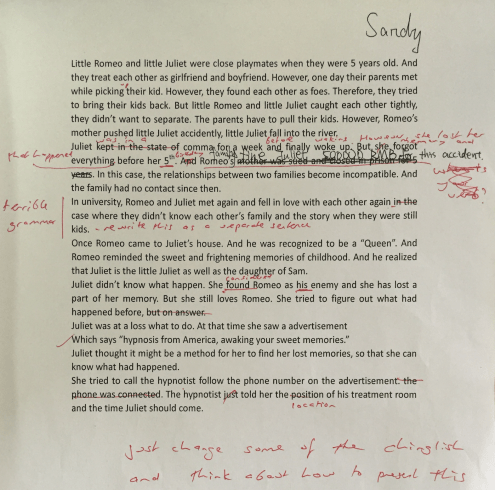 Sandy
Little Romeo and little Juliet were close playmates when they were 5 years old. And
they treat each other as girlfriend and boyfriend. However, one day their parents met
while picking their kid home. However, they found each other as foes. Therefore, they tried
to bring their kids back. But little Romeo and little Juliet caught each other tightly,
they didn't want to separate. The parents have to pull their kids. However, Romeo's
mother pushed little Juliet accidently, little Juliet fall into the river.
was in a before waking However, she lost her
Juliet kept in the state of comma for a week and finally woke up. But she forgot
that happened
everything before her 5th And Romeo's mother was sued and closed in prison for 3
the Juliet 500000 RMB for this accident.
years. In this case, the relationships between two families become incompatible. And
the family had no contact since then.
terrible
grammar
In university, Romeo and Juliet met again and fell in love with each other again in the
case where they didn't know each other's family and the story when they were still
kids. - rewrite this as a separate sentence
Once Romeo came to Juliet's house. And he was recognized to be a "Queen". And
Romeo reminded the sweet and frightening memories of childhood. And he realized
that Juliet is the little Juliet as well as the daughter of Sam.
considered
Juliet didn't know what happen. She found Romeo as his enemy and she has lost a
part of her memory. But she still loves Romeo. She tried to figure out what had
happened before, but on answer.
Juliet was at a loss what to do. At that time she saw a advertisement
Which says "hypnosis from America, awaking your sweet memories."
Juliet thought it might be a method for her to find her lost memories, so that she can
know what had happened.
She tried to call the hypnotist follow the phone number on the advertisement: the
phone was connected. The hypnotist just told her the position of his treatment room
location
and the time Juliet should come.
just change some of the chinglish
and think about how to present this